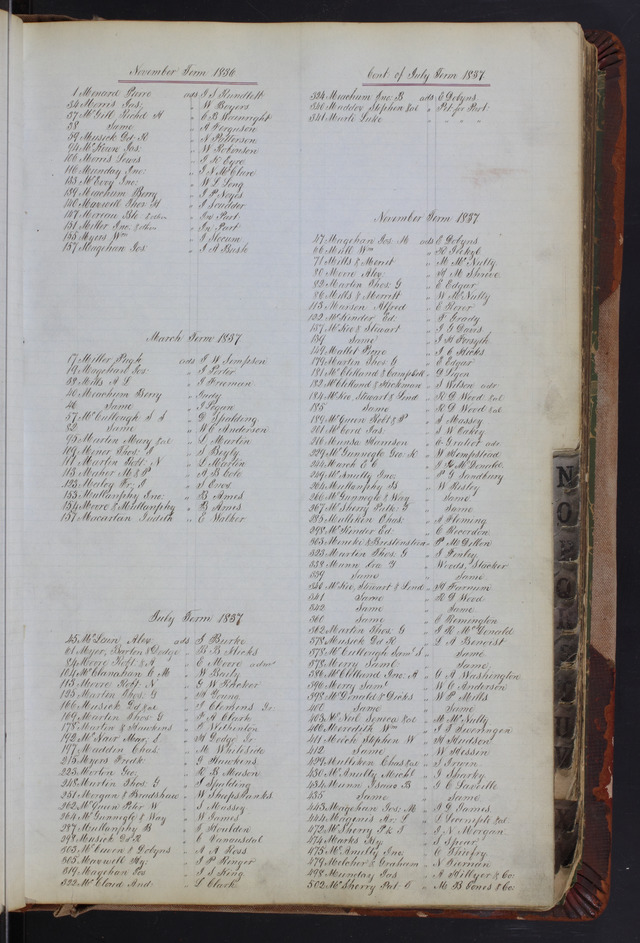 November Term 1836
1 Menard Pierre ads J S Rundlett
34 Morris Jas: " W Boyers
37 McGill Richd H " C B Wainright
38 Same " A Ferguson
39 Musick Dd R " N Patterson
94 McKeen Jas: " W Robinson
106 Morris Lewis " J R Eyre
116 Munday Jno: " J A McClure
135 McEvoy Jno: " W L Long
139 Meachum Berry " J P Keyes
140 Maxwell Thos H
147 Moreau Bte & other " In Part
151 Miller Jno: & others " In Part
155 Myers Wm " J Slocum
157 Magehan Jos: " J A Bush
March Term 1837
17 Miller Pugh ads J W Simpson
19 Magehan Jos: " J Porter
39 Mills A L " J Freeman
40 Meachum Berry " Judy
46 Same " J Logan
57 McCullough S A " D Spalding
82 Same " W C Anderson
95 Martin Mary &al " L Martin
109 Menor Thos: J " S Bogly
111 Martin Robt: N " L Martin
113 Maher M & P " A B Cole
123 Maley Hy: J
153 Mullanphy Jno: " B Ames
154 Moore & Mullanphy " B Ames
157 Macarlan Judith " E Walker
July Term 1837
45 McLean, Alex: ads J Burke
61 Moyer, Barton & Dodge " B B Hicks
84 Moore Robt & A " E Moore admr
104 McClanahan C M " W Baily
115 Moore Robt N " G W Kracker
125 Martin Thos: G
166 Musick Dd &al " J Clemens Jr
169 Martin Thos: G " J A Clark
178 Martin & Hawkins
192 McNair Mar: S " H Godge Sr
197 Madden Chas: " M Whiteside
215 Myers Fredk: " G Hawkins
223 Morton Geo: " R B Mason
248 Martin Thos: G " J Spalding
251 Morgan & Bradshaw " W Shopshanks
262 McGuen Peter W " J Massey
264 McGunnegle & Way " W James
287 Mullanphy B " J Moulden
298 Musick Dd R " A Vanausdal
303 McCuen & Dobyns " A A Ross
305 Maxwell Hy: " J P Ringer
319 Magehan Jos " J J King
322 McCloud And: " L Clark
Cont. of July Term 1837
334 Meachum Jno: B ads E Dobyns
340 Maddox Stephen &al " Pet. for Part.
341 Marle Luke " " " "
November Term 1837
47 Magehan Jos: M ads E Dobyns
66 Mill Wm
71 Mills & Merrit " M McNulty
80 Moore Alex: " H M Shrive
82 Martin Thos: G " E Edgar
86 Mills & Merritt " W McNulty
113 Marson Alfred
132 McKinder Ed: " P Grady
137 McKee & Stewart " J G Davis
139 Same " J H Forsyth
149 Mallet Pierre " J C Hicks
179 Martin Thos: G " E Edgar
181 McClelland & Campbell " D Ligon
183 McClelland & Hickman " S Wilson adr
184 McKee, Stewart & Lind " R D Wood &al
185 Same " R D Wood &al
189 McGuen Robt & P " J Massey
201 McCord Jas: " S W Eckey
216 Munsa Harrison
229 McGunnegle Geo: K " W Hempstead
244 March E C
249 McAnulty Jno: " P G Sandbury
264 Mullanphy B " W Risley
266 McGunnegle & Way " Same
267 McSherry Patk: G " Same
285 Mulliken Chas: " A Fleming
298 McKinder Ed: " E Reordon
305 Menke & Brostenstein " P McDillon
323 Martin Thos: G " J Finley
332 Munn Ira Y " Woods, Stacker
339 Same " Same
340 McKee, Stewart & Lind " H Farnum
341 Same " R D Wood
342 Same " Same
361 Same " E Remington
362 Martin Thos: G " J R McDonald
378 Musick Dd R " L A Benoist
378 McCullough Saml S " Same
378 Merry Saml: " Same
386 McClelland Jno: A " G A Washington
396 Merry Saml " W C Anderson
398 McDonald & Dicks " W P Mills
401 Same " Same
403 McNeil Seneca &al " M McNulty
406 Meredith Wm " J S Sweringen
411 Meech Stephen W " H Hudson
412 Same " W Hessin
429 Mulliken Chas &al " J Irwin
430 McAnulty Michl " J Sharky
434 Mann Isaac B " J C Laveille
435 Same " Same
443 Magehan Jos: M " J G James
444 Maginis Ar: L
472 McSherry P & J " J N Morgan
474 Marks Hy: " J Spear
475 McAnulty Jno:
479 Melcher & Graham " N Bieman
498 Munday Jas " A Hillyer & Co:
502 McSherry Pat. G " M B Cones & Co:
N
O